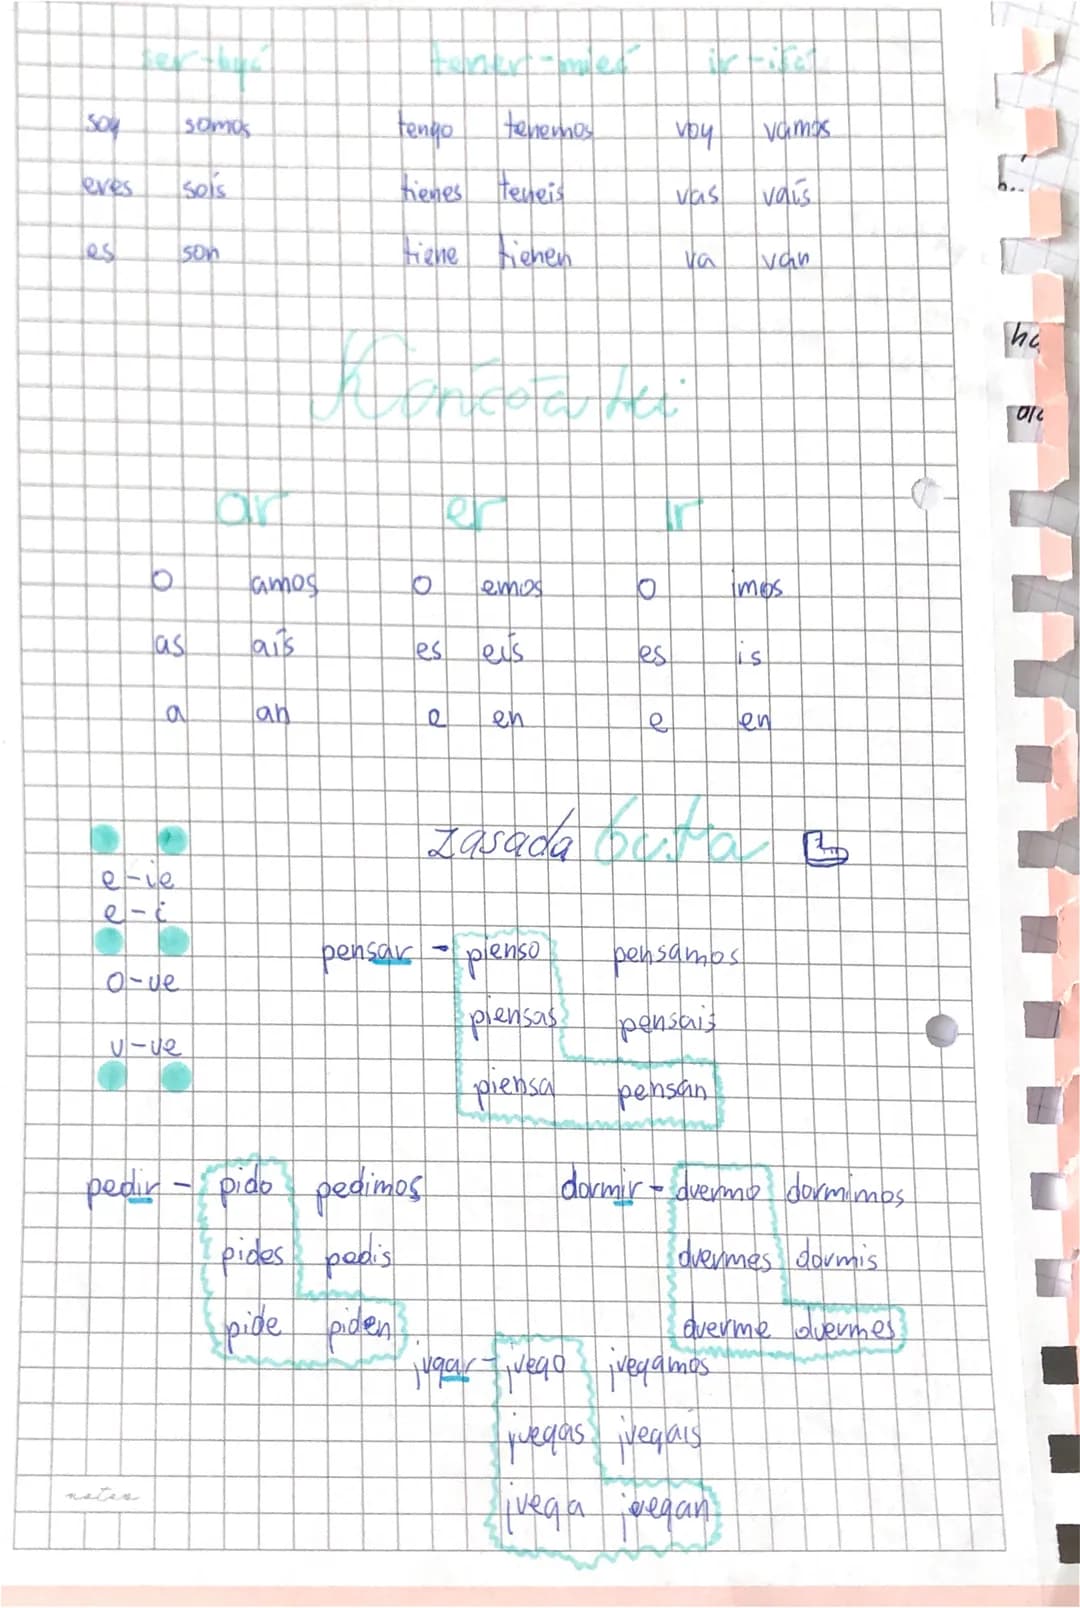 ser-być tener-mieć ir-iść
soy somos tengo tenemos voy vamos
eres soís tienes teneis vas vaís
es son tiene tienen va van
Końcówki
ar er ir
o amos o emos o imos
as aís es eís es is
a an e en e en
zasada buta
e-ie
e-i
o-ue
u-ue
pensar - pienso pensamos
piensas pensais
piensa pensan
pedir - pido pedimos
pides pedis
pide piden
dormir - duermo dormimos
duermes dormis
duerme duermes
jugar - juego juegamos
juegas juegais
juega juegan
notes